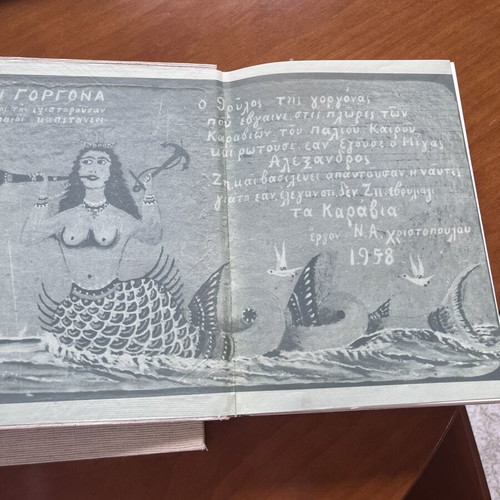 ΓΟΡΓΟΝΑ
της
καπετανεοι
Ο θρύλος της γοργόνας
που έβγαινε στις πλώρες των
Καραβιών του παλιού Καιρού
και ρωτούσε εάν εζούσε ο Μέγας
Αλέξανδρος
Ζη και βασιλεύει απαντούσαν η ναύτες
γιατη εαν έλεγαν οτι δεν Ζη
τα Καράβια
έργον Ν.Α. Χριστοπούλου
1958